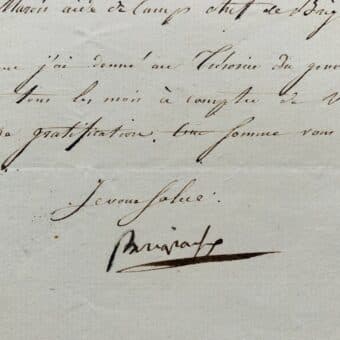 aide de Camp chef de Brig
que j'ai donné au Trésorier du gouv
tous les mois à compter de V
gratification. Une somme vous
Je vous salue.